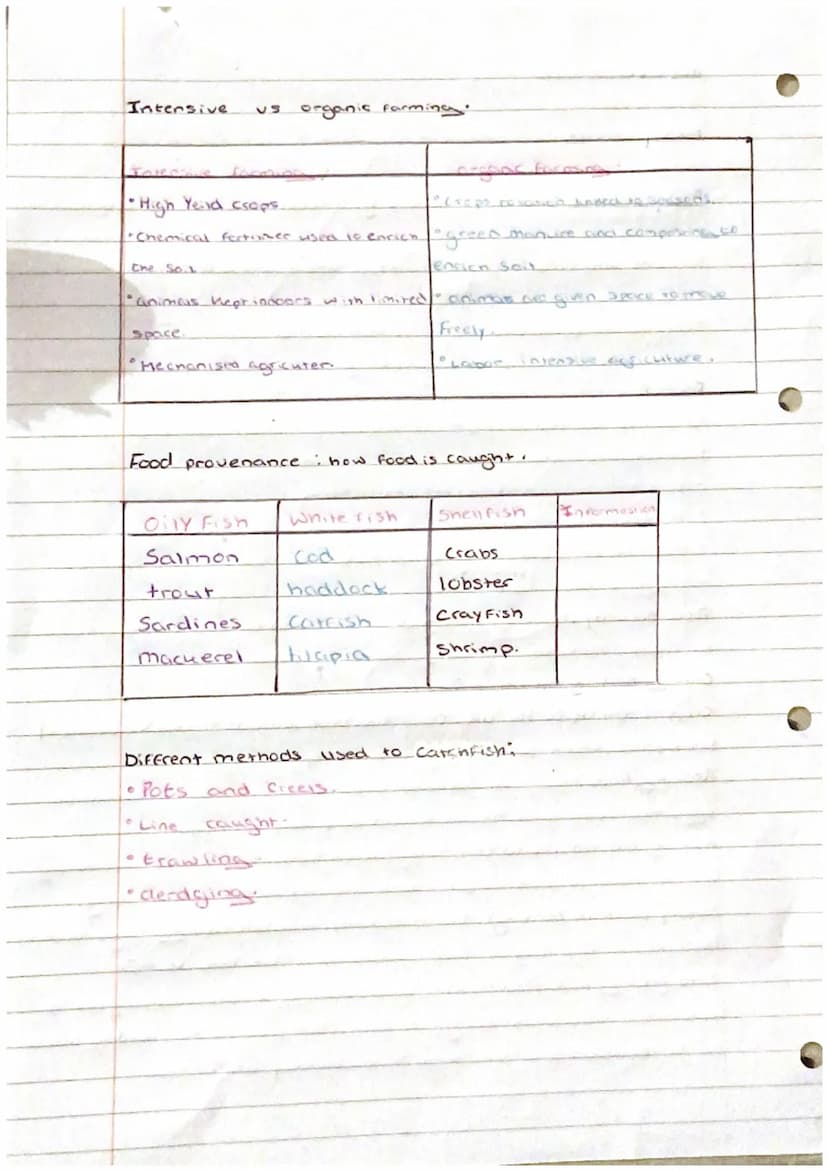 Intensive vs organic farming.
Intensive farming.
organic farming.
• High Yeild crops.
• Chemical fertiliser used to enrich
the soil
• animals kept indoors with limited
space.
• Mechanised agricuter.
• Crops rotation
• green manure and composting to
enrich soil
• animals are given space to move
freely.
• Labour intensive agriculture.
Food provenance : how food is caught.
Oily Fish White fish Shellfish Information
Salmon cod crabs
trout haddock lobster
Sardines catfish crayfish
mackerel tilapia Shrimp.
Diffrent methods used to catch fish:
• Pots and creels.
• Line caught.
• trawling
• derdging.